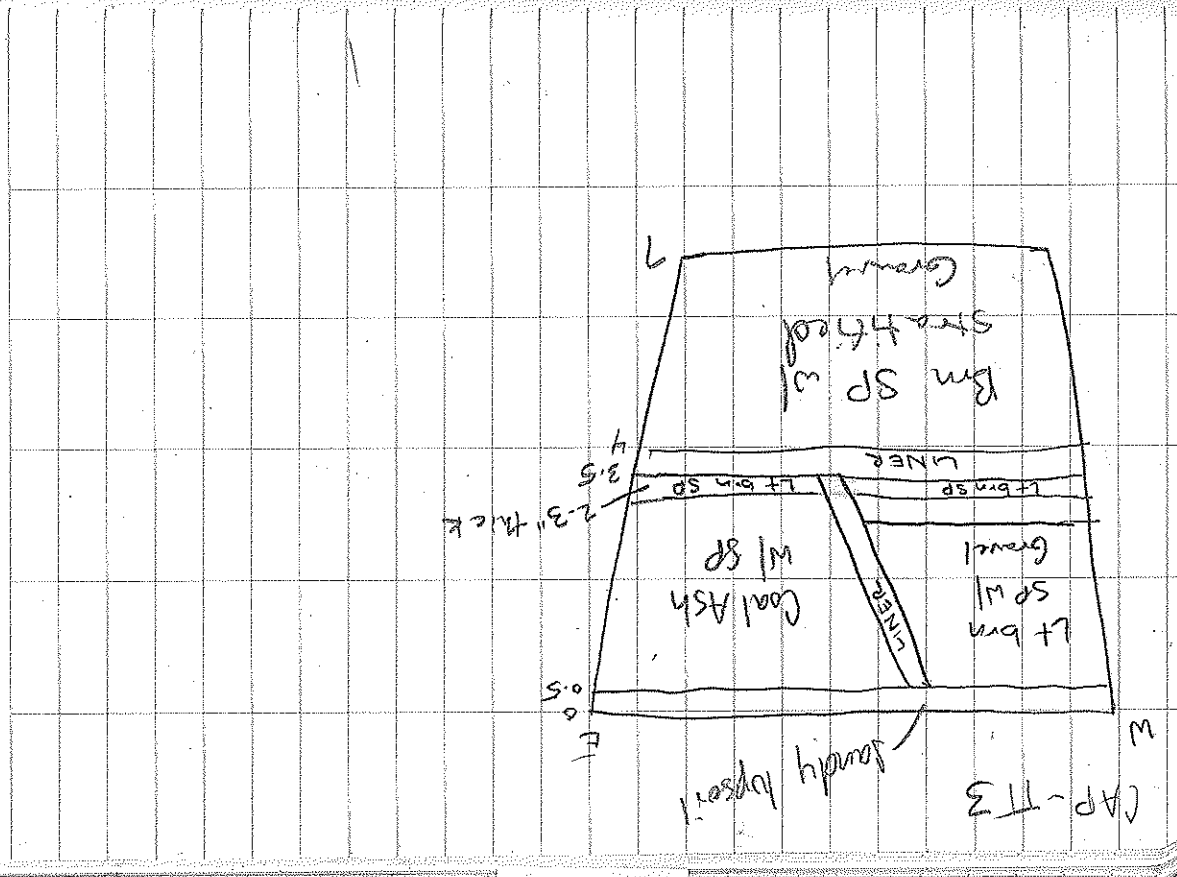 CAP-TT3
Sandy topsoil
W
E
0
0.5
Lt brn
SP w/
Gravel
LINER
Coal Ash
w/ SP
2-3" thick
Lt brn SP
Lt brn SP
3.5
LINER
4
Brn SP w/
Stratified
Gravel
7